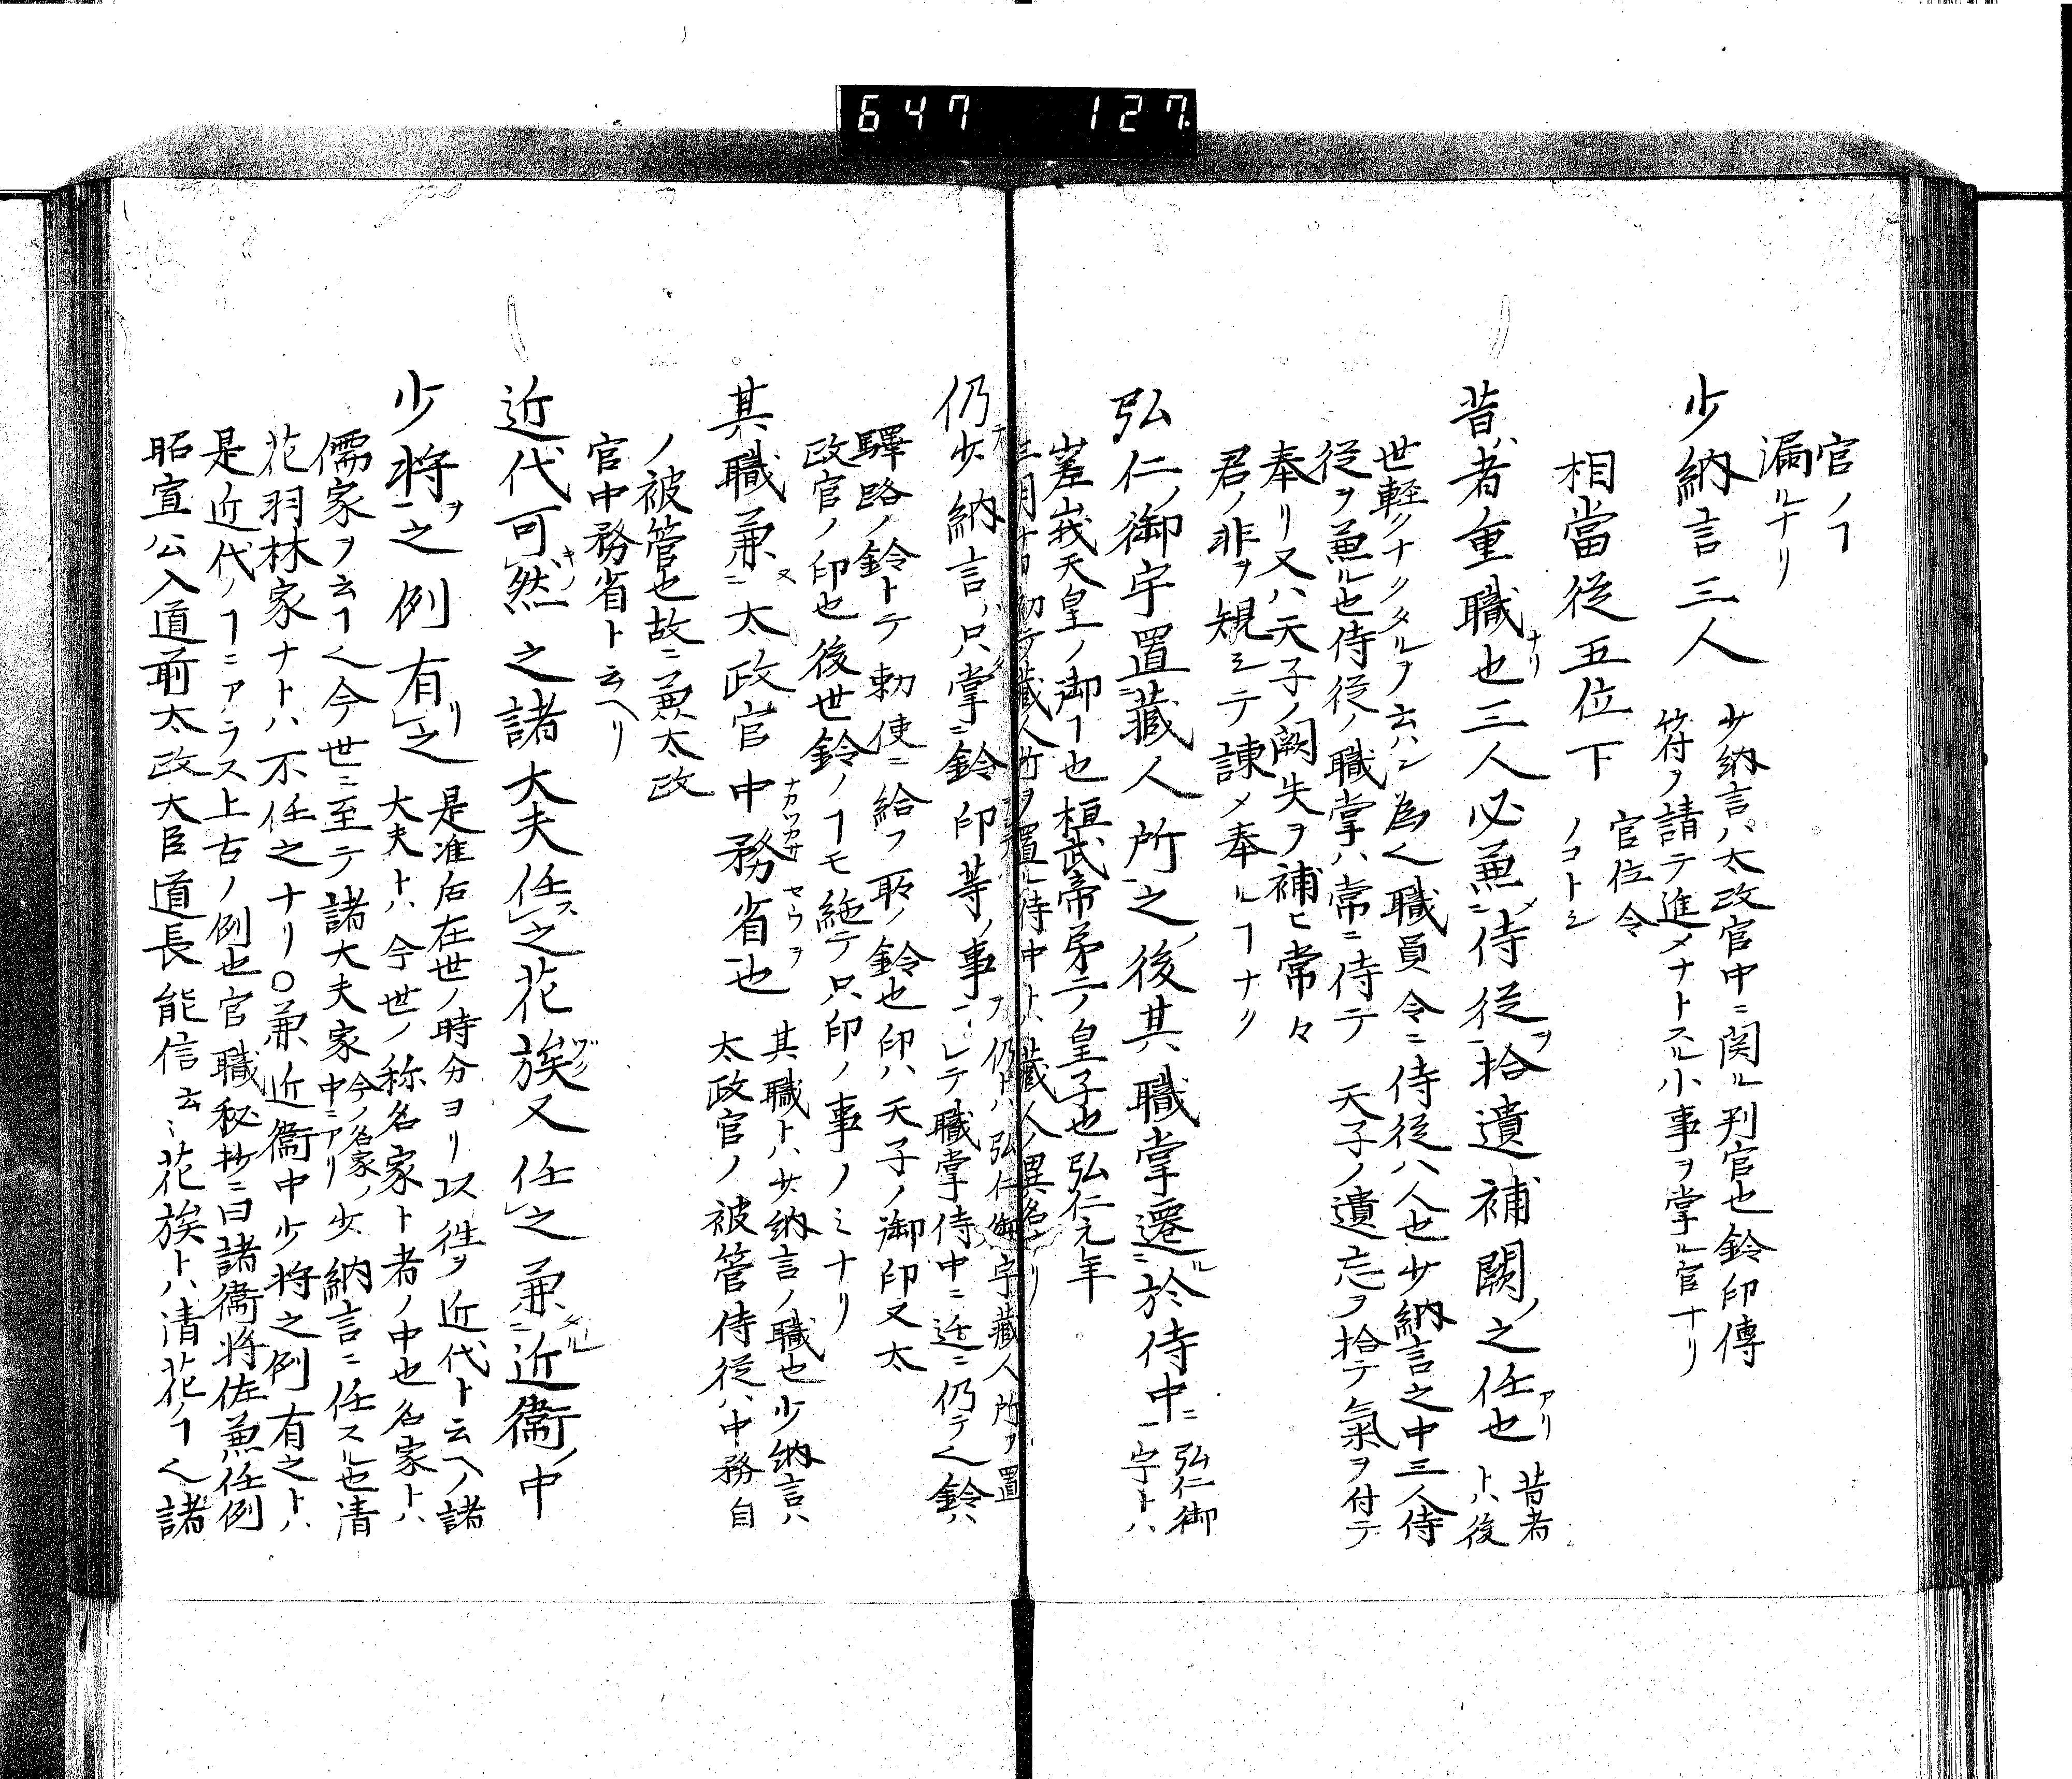 647 127
官ノヿ
漏ルナリ
少納言三人 少納言ハ太政官中ニ関ル判官也鈴印傳
符ヲ請テ進メナトスル小事ヲ掌ル官ナリ
相當従五位下 官位令
ノコトシ
昔ハ者重職也ナリ三人必兼ニメ侍従ヲ一拾遺補闕ノ之任也アリ 昔者
トハ後
世軽クナクタルヲ云ハン為く職員令ニ侍従八人也少納言之中三人侍
従ヲ兼ル也侍従ノ職掌ハ常ニ侍テ 天子ノ遺忘ヲ拾テ氣ヲ付テ
奉リ又ハ天子ノ闕失ヲ補ヒ常々
君ノ非ヲ規シテ諌メ奉ルヿナリ
弘仁ノ御宇置ニ蔵人所一之ノ後其職掌遷ルニ於侍中ニ一 弘仁御
宇トハ
嵯峩天皇ノ御ヿ也桓武帝第二ノ皇子也弘仁元年
三月十日初テ蔵人所ヲ置ル侍中トハ蔵人ノ異名ナリ
仍テ少納言ハ只掌ニ鈴印等ノ事ヲ一 仍トハ弘仁御宇蔵人所ヲ置
レテ職掌侍中ニ迁ニ仍テく鈴ハ
驛路ノ鈴トテ勅使ニ給フ所ノ鈴也印ハ天子ノ御印又太
政官ノ印也後世鈴ノヿモ絶テ只印ノ事ノミナリ
其職兼ニヌ太政官中務省ナカツカサセウヲ一也 其職トハ少納言ノ職也少納言ハ
太政官ノ被管侍従ハ中務自
ノ被管也故ニ兼太政
官中務省ト云ヘリ
近代可キノ然之諸大夫任ス之花族ゾク又任之兼ニタル近衞ノ中
少将ヲ一之例有リ之 是准后在世ノ時分ヨリ以徃ヲ近代ト云ヘノ諸
大夫トハ今世ノ称名家ト者ノ中也名家トハ
儒家ヲ云ヿく今世ニ至テ諸大夫家今ノ名家ノ中ニアリ少納言ニ任スル也清
花羽林家ナトハ不任之ナリ○兼近衞中少将之例有之トハ
是近代ノヿニアラス上古ノ例也官職秘抄ニ曰諸衞将佐兼任例
昭宣公入道前太政大臣道長能信云〻花族トハ清花ノヿく諸